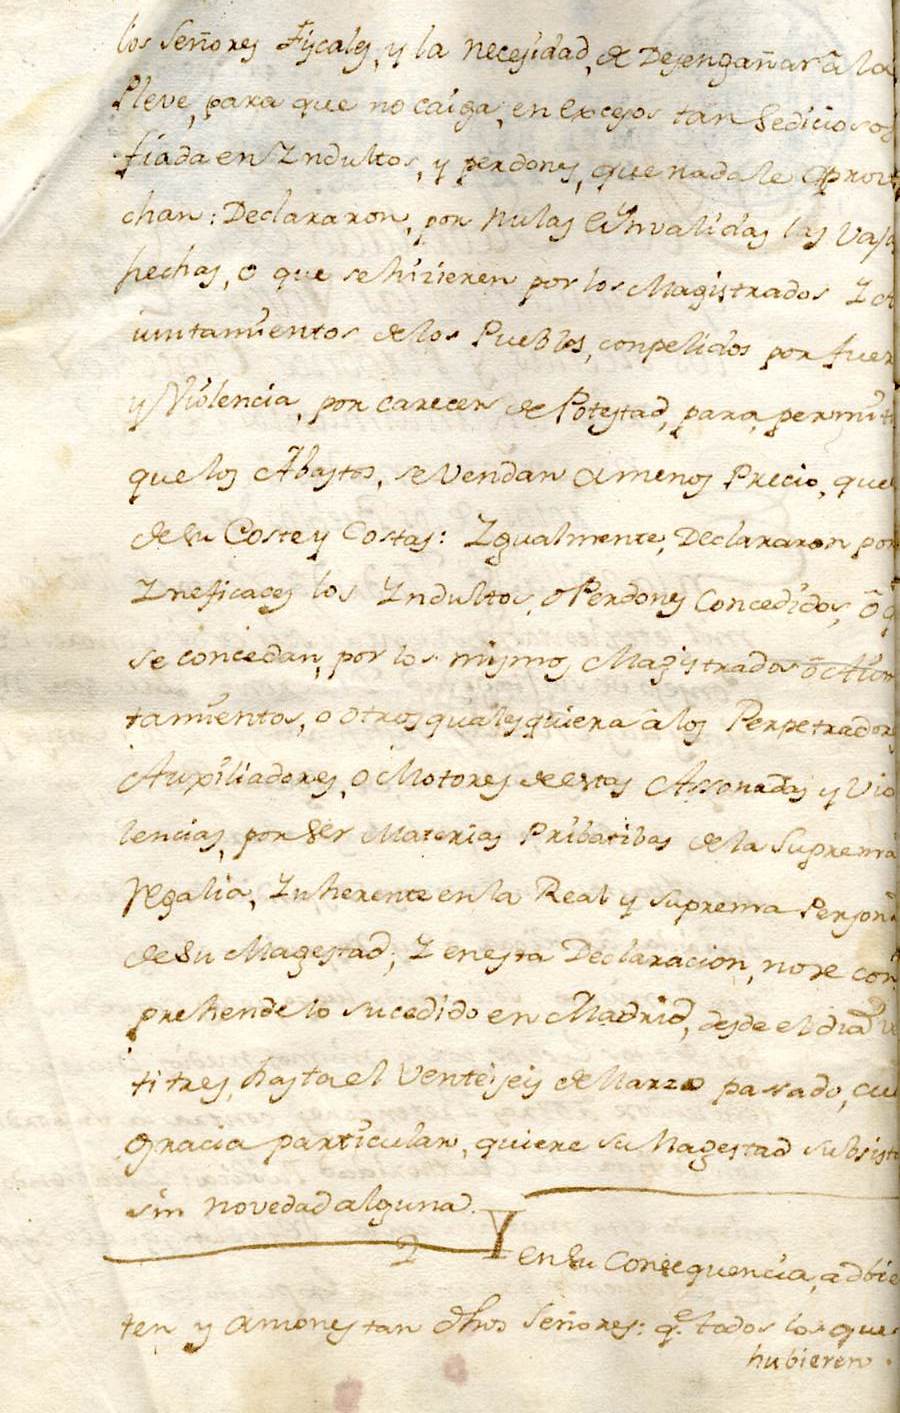 los Señores Fiscales, y la necesidad, de Desengañar â la
Pleve, para que no caiga, en excesos tan Sediciosos
fiada en Yndultos, y perdones, que nada le aprove
chan: Declararon, por nulas é Ynvalidas las vajas
hechas, o que se hizieren por los Magistrados Y A
iuntamientos de los Pueblos, conpelidos por fuer
y Violencia, por carecer de Potestad, para, permiti
que los Abastos, se vendan a menos Precio, que
de su Coste y Costas: Ygualmente, Declararon por
Yneficaces los Yndultos, o Perdones Concedidos, ô q
se concedan, por los mismos Magistrados ô Aiun
tamientos, o otros qualesquiera â los Perpetradores
Auxiliadores, o Motores de estas Assonadas y Vio
lencias, por ser Materias Pribatibas de la Suprema
Regalia, Ynherente en la Real y suprema Person
de Su Magestad; Y en esta Declaracion, no se con
prehende lo sucedido en Madrid, desde el dia Ve
ti tres, hasta el Venteiseis de Marzo passado, cui
gracia particular, quiere su Magestad subsist
sin novedad alguna.
2 En su Consequencia, adbie
ten y amonestan dhos Señores: q.e todos los que
hubieren.